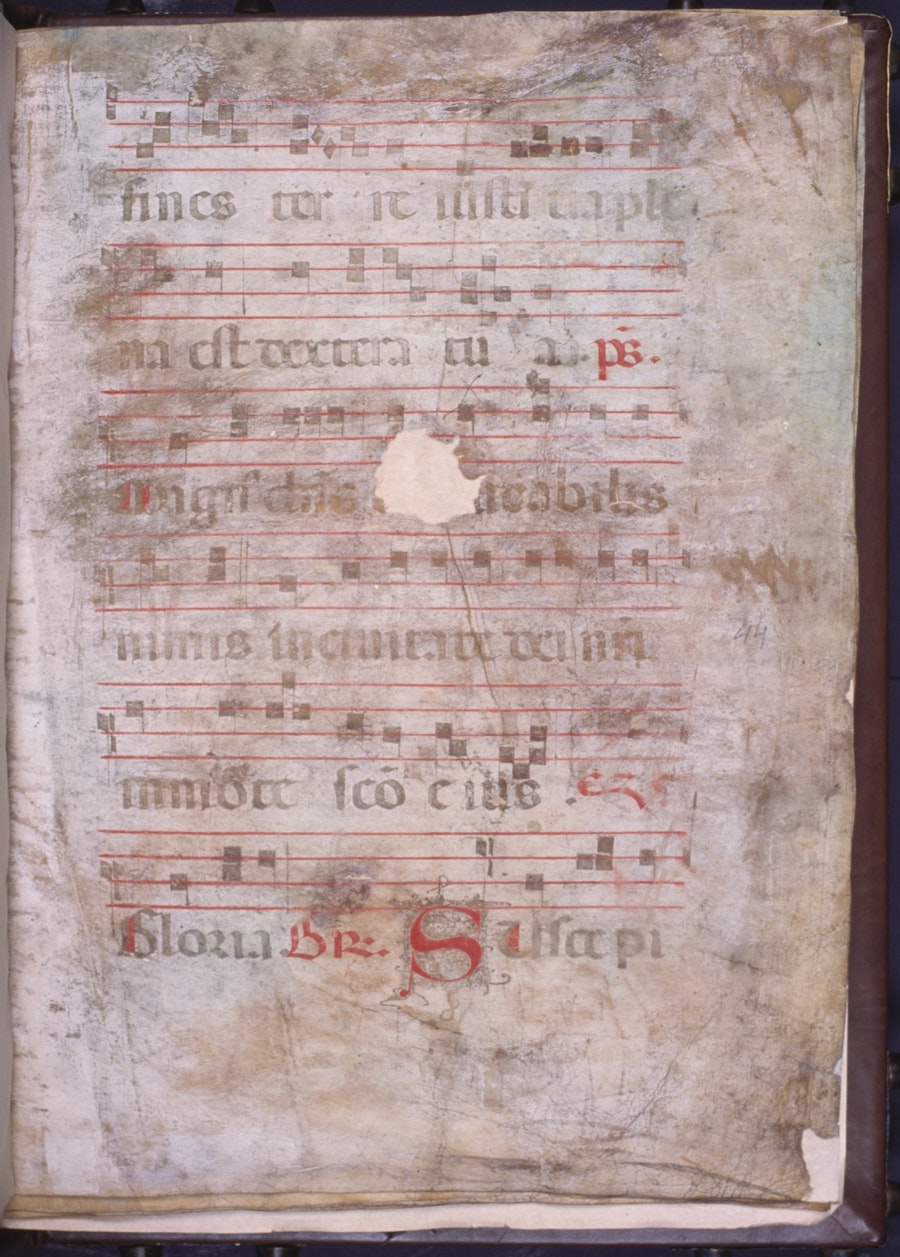 fines ter re iusti tia ple
na est dextera tu a. ps.
Magn' dns abilis
nimis in ciuitate dei nri
in mōte scō eius .
Gloria R. Suscepi
44